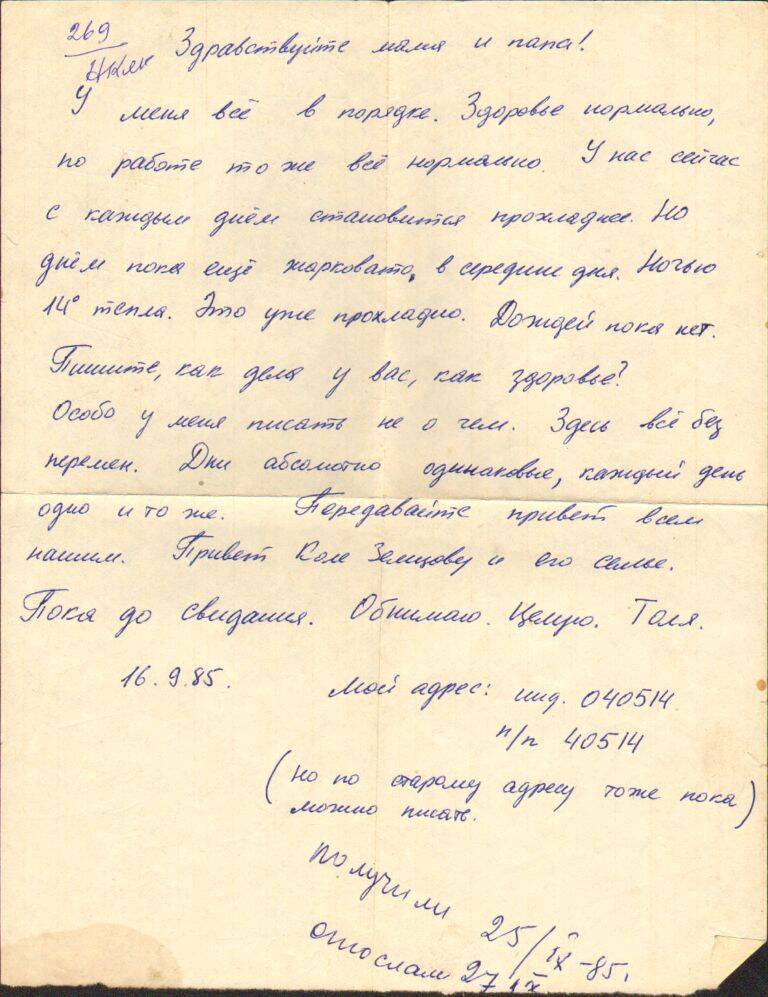 269
Здравствуйте мама и папа!
У меня всё в порядке. Здоровье нормально,
по работе то же всё нормально. У нас сейчас
с каждым днём становится прохладнее. Но
днём пока ещё жарковато, в середине дня. Ночью
14° тепла. Это уже прохладно. Дождей пока нет.
Пишите, как дела у вас, как здоровье?
Особо у меня писать не о чем. Здесь всё без
перемен. Дни абсолютно одинаковые, каждый день
одно и то же. Передавайте привет всем
нашим. Привет Коле Земцову и его семье.
Пока до свидания. Обнимаю. Целую. Толя.
16.9.85.
Мой адрес: инд. 040514
п/п 40514
(но по старому адресу тоже пока)
можно писать.
получили 25/IX-85.
отослали 27 IX